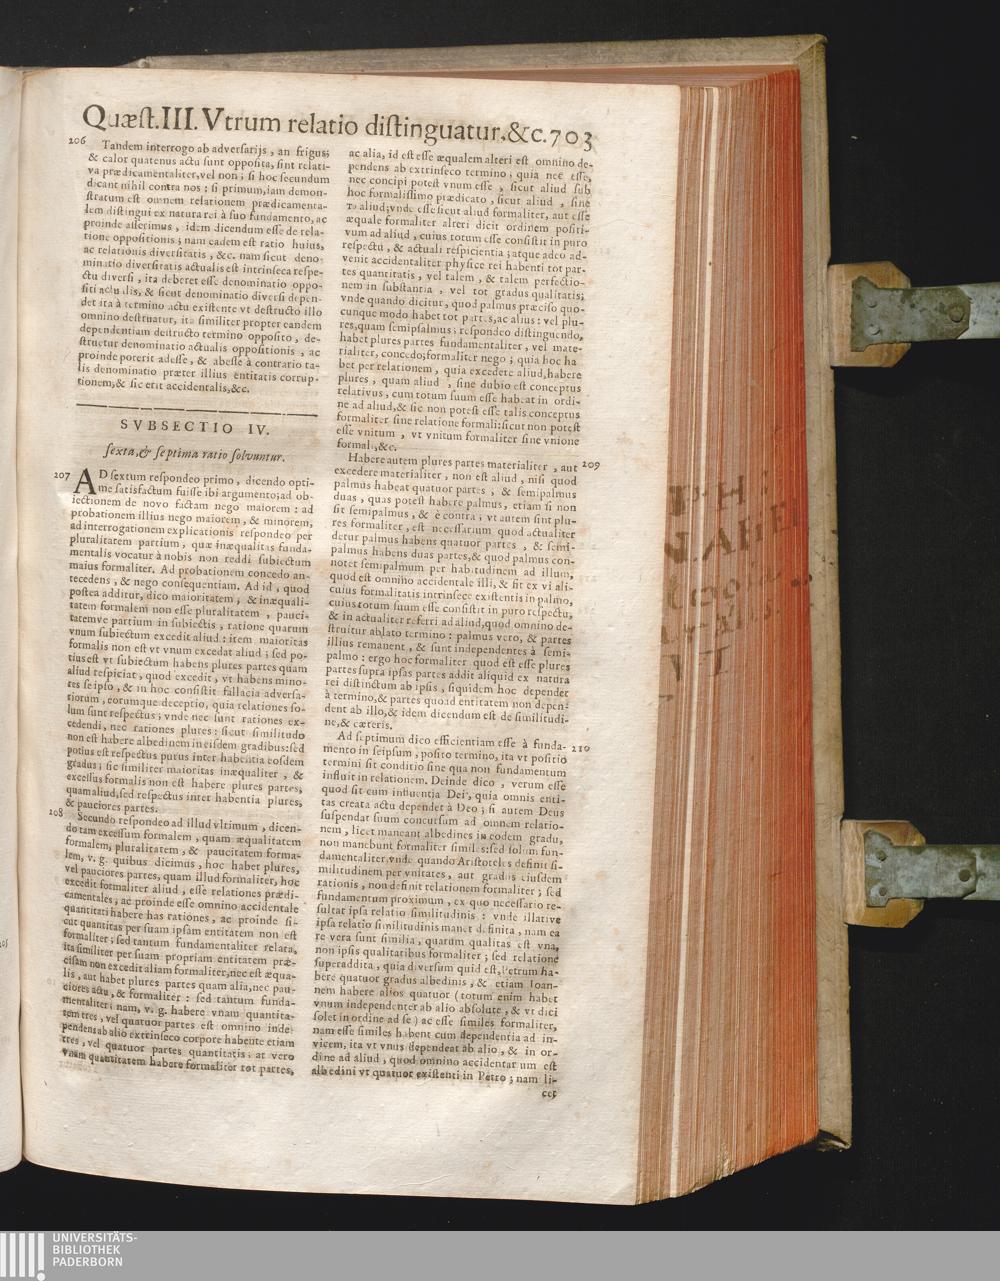 Quæst.III. Vtrum relatio distinguatur.&c. 703
206 Tandem interrogo ab adversarijs, an frigus;
& calor quatenus actu sunt opposita, sint relati-
va prædicamentaliter, vel non; si hoc secundum
dicant nihil contra nos: si primum, iam demon-
stratum est omnem relationem prædicamenta-
lem distingui ex natura rei à suo fundamento, ac
proinde asserimus, idem dicendum esse de rela-
tione oppositionis; nam eadem est ratio huius,
ac relationis diversitatis, &c. nam sicut deno-
minatio diversitatis actualis est intrinseca respe-
ctu diversi, ita deberet esse denominatio oppo-
siti actualis, & sicut denominatio diversi depen-
det ita à termino actu existente vt destructo illo
omnino destruatur, ita similiter propter eandem
dependentiam destructo termino opposito, de-
struetur denominatio actualis oppositionis, ac
proinde poterit adesse, & abesse à contrario ta-
lis denominatio præter illius entitatis corrup-
tionem, & sic erit accidentalis, &c.
SVBSECTIO IV.
sexta, & septima ratio solvuntur.
207 AD sextum respondeo primo, dicendo opti-
me satisfactum fuisse ibi argumento; ad ob-
iectionem de novo factam nego maiorem: ad
probationem illius nego maiorem, & minorem,
ad interrogationem explicationis respondeo per
pluralitatem partium, quæ inæqualitas funda-
mentalis vocatur à nobis non reddi subiectum
maius formaliter. Ad probationem concedo an-
tecedens, & nego consequentiam. Ad id, quod
postea additur, dico maioritatem; & inæquali-
tatem formalem non esse pluralitatem, pauci-
tatemve partium in subiectis, ratione quarum
vnum subiectum excedit aliud: item maioritas
formalis non est vt vnum excedat aliud; sed po-
tius est vt subiectum habens plures partes quam
aliud respiciat, quod excedit, vt habens mino-
res se ipso, & in hoc consistit fallacia adversa-
riorum, eorumque deceptio, quia relationes so-
lum sunt respectus; vnde nec sunt rationes ex-
cedendi, nec rationes plures: sicut similitudo
non est habere albedinem in eisdem gradibus: sed
potius est respectus purus inter habentia eosdem
gradus; sic similiter maioritas inæqualiter, &
excessus formalis non est habere plures partes,
quam aliud, sed respectus inter habentia plures,
& pauciores partes.
208 Secundo respondeo ad illud vltimum, dicen-
do tam excessum formalem, quam æqualitatem
formalem, pluralitatem, & paucitatem forma-
lem, v. g. quibus dicimus, hoc habet plures,
vel pauciores partes, quam illud formaliter, hoc
excedit formaliter aliud, esse relationes prædi-
camentales; ac proinde esse omnino accidentale
quantitati habere has rationes, ac proinde si-
cut quantitas per suam ipsam entitatem non est
formaliter; sed tantum fundamentaliter relata,
ita similiter per suam propriam entitatem præ-
cisam non excedit aliam formaliter, nec est æqua-
lis, aut habet plures partes quam alia, nec pau-
ciores actu, & formaliter: sed tantum funda-
mentaliter; nam, v. g. habere vnam quantita-
tem tres, vel quatuor partes est omnino inde-
pendens ab alio extrinseco corpore habente etiam
tres, vel quatuor partes quantitatis: at vero
vnam quantitatem habere formaliter tot partes,
ac alia, id est esse æqualem alteri est omnino de-
pendens ab extrinseco termino; quia nec esse,
nec concipi potest vnum esse, sicut aliud sub
hoc formalissimo prædicato, sicut aliud, sine
To aliud; vnde esse sicut aliud formaliter, aut esse
æquale formaliter alteri dicit ordinem positi-
vum ad aliud, cuius totum esse consistit in puro
respectu, & actuali respicientia; atque adeo ad-
venit accidentaliter physice rei habenti tot par-
tes quantitatis, vel talem, & talem perfectio-
nem in substantia, vel tot gradus qualitatis;
vnde quando dicitur, quod palmus præciso quo-
cunque modo habet tot partes, ac alius: vel plu-
res, quam semipalmus; respondeo distinguendo,
habet plures partes fundamentaliter, vel mate-
rialiter, concedo; formaliter nego; quia hoc ha
bet per relationem, quia excedere aliud, habere
plures, quam aliud, sine dubio est conceptus
relativus, cum totum suum esse habeat in ordi-
ne ad aliud, & sic non potest esse talis conceptus
formaliter sine relatione formali: sicut non potest
esse vnitum, vt vnitum formaliter sine vnione
formali, &c.
Habere autem plures partes materialiter, aut 209
excedere materialiter, non est aliud, nisi quod
palmus habeat quatuor partes, & semipalmus
duas, quas potest habere palmus, etiam si non
sit semipalmus, & è contra; vt autem sint plu-
res formaliter, est necessarium quod actualiter
detur palmus habens quatuor partes, & semi-
palmus habens duas partes, & quod palmus con-
notet semipalmum per habitudinem ad illum,
quod est omnino accidentale illi, & fit ex vi ali-
cuius formalitatis intrinsece existentis in palmo,
cuius totum suum esse consistit in puro respectu,
& in actualiter referri ad aliud, quod omnino de-
struitur ablato termino: palmus vero, & partes
illius remanent, & sunt independentes à semi-
palmo: ergo hoc formaliter quod est esse plures
partes supra ipsas partes addit aliquid ex natura
rei distinctum ab ipsis, siquidem hoc dependet
à termino, & partes quoad entitatem non depen-
dent ab illo, & idem dicendum est de similitudi-
ne, & cæteris.
Ad septimum dico efficientiam esse à funda- 210
mento in seipsum, posito termino, ita vt positio
termini sit conditio sine qua non fundamentum
influit in relationem. Deinde dico, verum esse
quod sit cum influentia Dei, quia omnis enti-
tas creata actu dependet à Deo; si autem Deus
suspendat suum concursum ad omnem relatio-
nem, licet maneant albedines in eodem gradu,
non manebunt formaliter similes: sed solum fun-
damentaliter vnde quando Aristoteles definit si-
militudinem per vnitates, aut gradus eiusdem
rationis, non definit relationem formaliter; sed
fundamentum proximum, ex quo necessario re-
sultat ipsa relatio similitudinis: vnde illative
ipsa relatio similitudinis manet definita, nam ea
re vera sunt similia, quarum qualitas est vna,
non ipsis qualitatibus formaliter; sed relatione
superaddita, quia diversum quid est, Petrum ha-
bere quatuor gradus albedinis, & etiam Ioan-
nem habere alios quatuor (totum enim habet
vnum independenter ab alio absolute, & vt dici
solet in ordine ad se) ac esse similes formaliter,
nam esse similes habent cum dependentia ad in-
vicem, ita vt vnus dependeat ab alio, & in or-
dine ad aliud, quod omnino accidentarium est
albedini vt quatuor existenti in Petro; nam li-
cet
UNIVERSITÄTS-
BIBLIOTHEK
PADERBORN